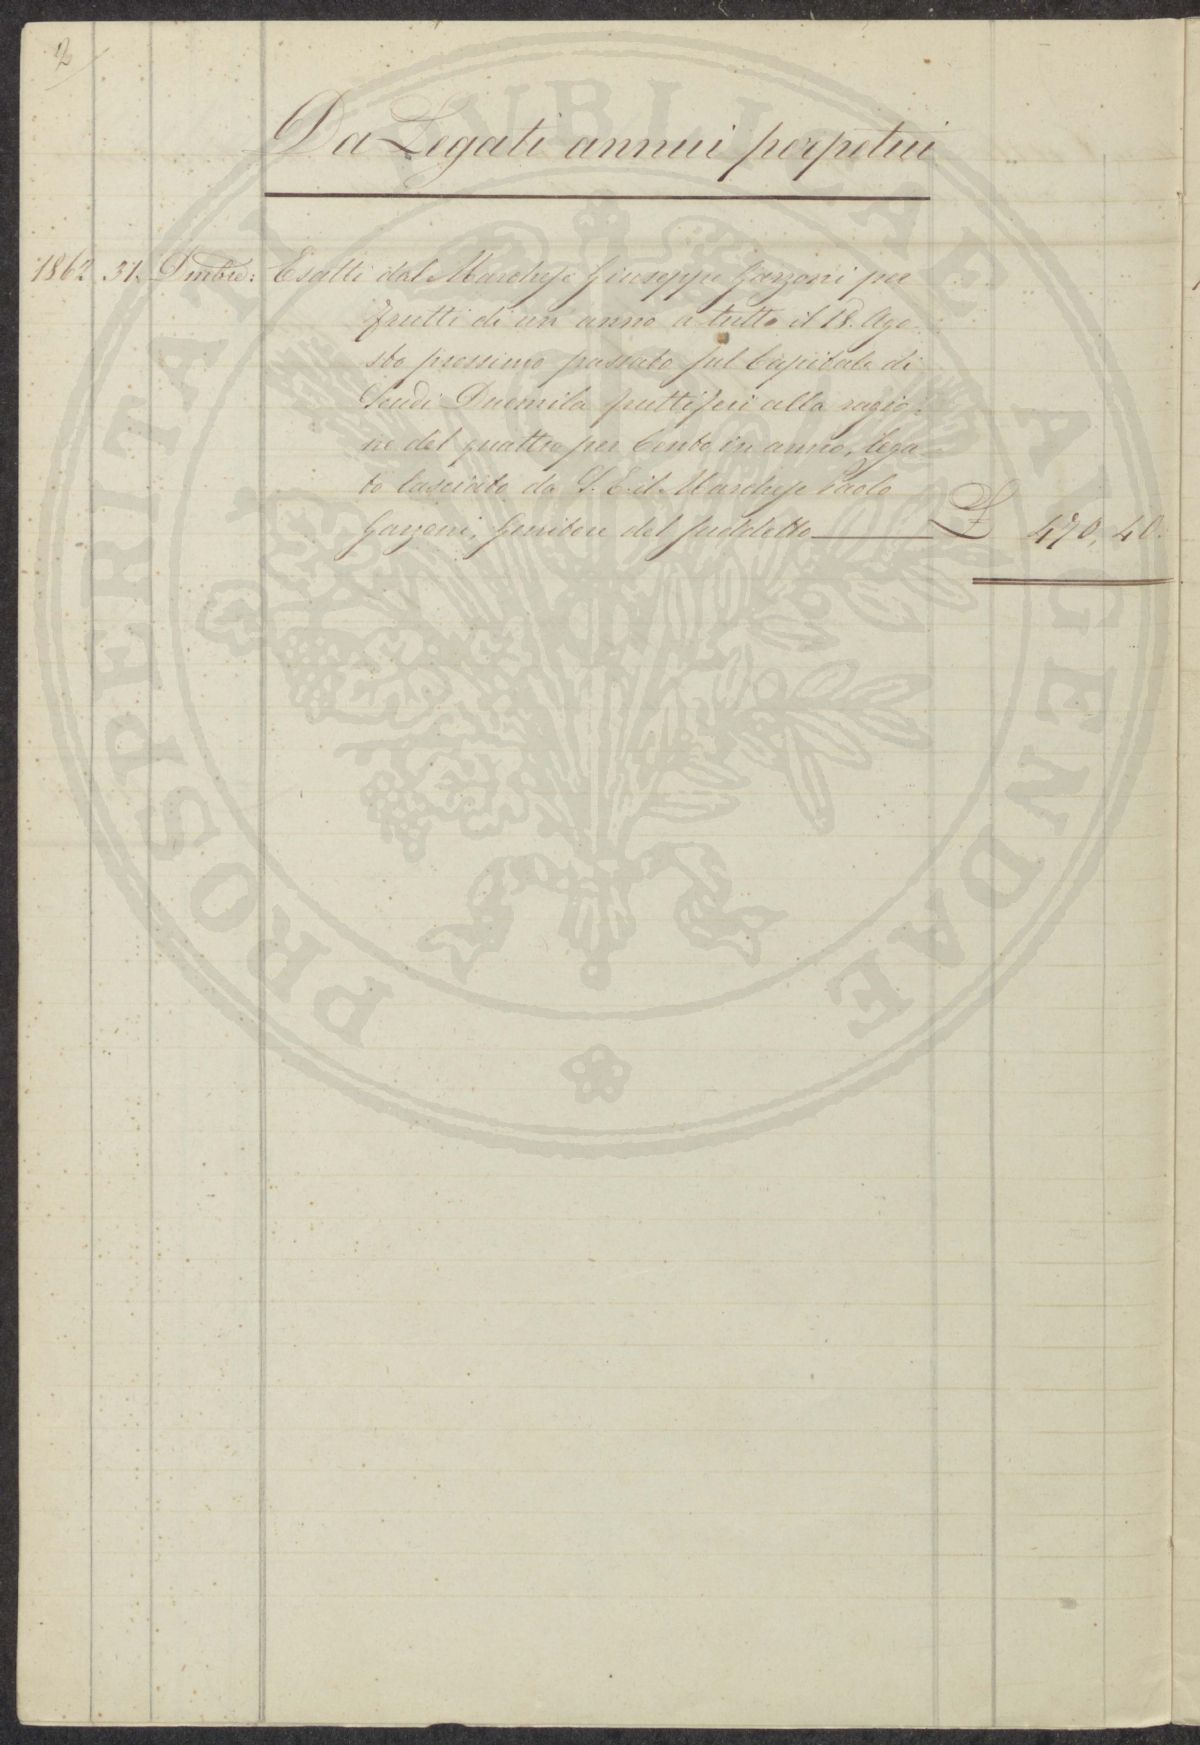 2
Da Legati annui perpetui
1862 31. Dmbre: Esatti dal Marchese Giuseppe Garzoni per
frutti di un anno a tutto il 18. Ago-
sto prossimo passato sul Capitale di
Scudi Duemila fruttiferi alla ragio-
ne del quattro per Cento in anno, lega-
to lasciato da S. E. il Marchese Paolo
Garzoni, Genitore del suddetto £ 470, 40.
PROSPERITATI PUBLICAE AUGENDAE